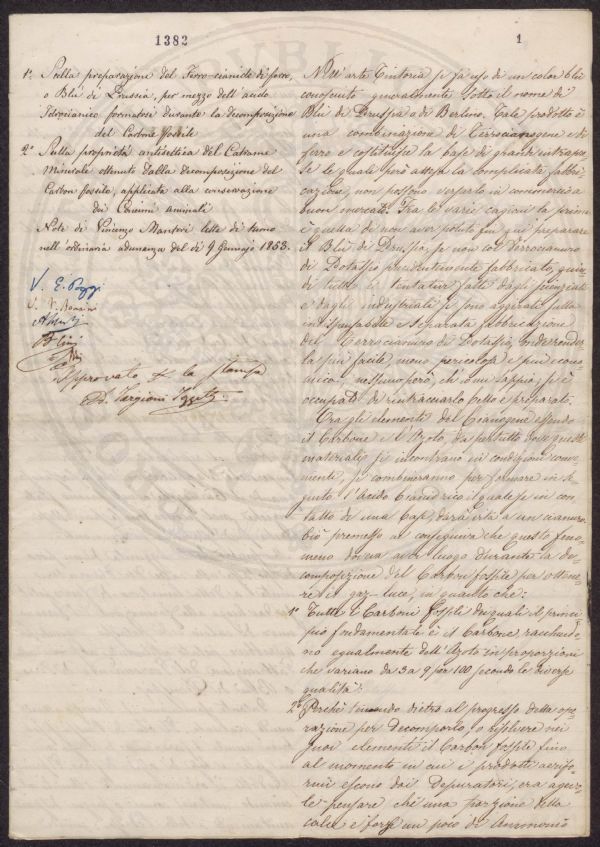 1382
1
1º Sulla preparazione del Ferro-cianide di ferro,
o Blù di Prussia, per mezzo dell'acido
Idrocianico formatosi durante la decomposizione
del Carbone fossile
2º Sulla proprietà antisettica del Catrame
Minerale ottenuto dalla decomposizione del
Carbon fossile, applicata alla conservazione
dei Concimi animali
Note di Vincenzo Manteri lette di turno
nell'ordinaria adunanza del dì 9 Gennajo 1853.
Approvato per la stampa
A. Targioni Tozzetti
Nell'arte Tintoria si fà uso di un color blù
conosciuto generalmente sotto il nome di
Blù di Prussia o di Berlino. Tale prodotto è
una combinazione di Ferrocianogene e di
ferro e costituisce la base di grandi intraprese
le quali però attesa la complicata fabbri-
cazione, non possono versarlo in commercio a
buon mercato. Fra le varie cagioni la prima
è quella di non aver potuto fin qui preparare
il Blù di Prussia, se non col Ferrocianuro
di Potassio precedentemente fabbricato, quin-
di tutti i tentativi fatti dagli scienziati
e dagli industriali si sono aggirati sulla
indispensabile e separata fabbricazione
del Ferrocianuro di Potassio, onde renderla
più facile, meno pericolosa e più eco-
mica, nessuno però, ch'io mi sappia, si è
occupato di rintracciarlo bello e preparato.
Tra gli elementi del Cianogene essendo
il Carbone e l'Azoto, da per tutto dove questi
materiali si incontrano in condizioni conve-
nienti, si combineranno per formare in se-
guito l'Acido Cianidrico il quale se in con-
tatto di una Base, darà vita a un cianuro.
Ciò premesso ne conseguiva che questo feno-
meno dovea aver luogo durante la de-
composizione del Carbon fossile per ottene-
re il gaz-luce, in quanto che:
1º Tutti i Carboni fossili dei quali il princi-
pio fondamentale è il Carbone, racchiudo-
no egualmente dell'Azoto in proporzioni
che variano da 3 a 9 per 100 secondo le diverse
qualità:
2º Perchè tenendo dietro al progresso della ope-
razione per decomporlo, o risolvere nei
suoi elementi il Carbon fossile fino
al momento in cui i prodotti aerifor-
mi escono dai Depuratori, era agevo-
le pensare che una porzione della
calce e forse un poco di Ammonio